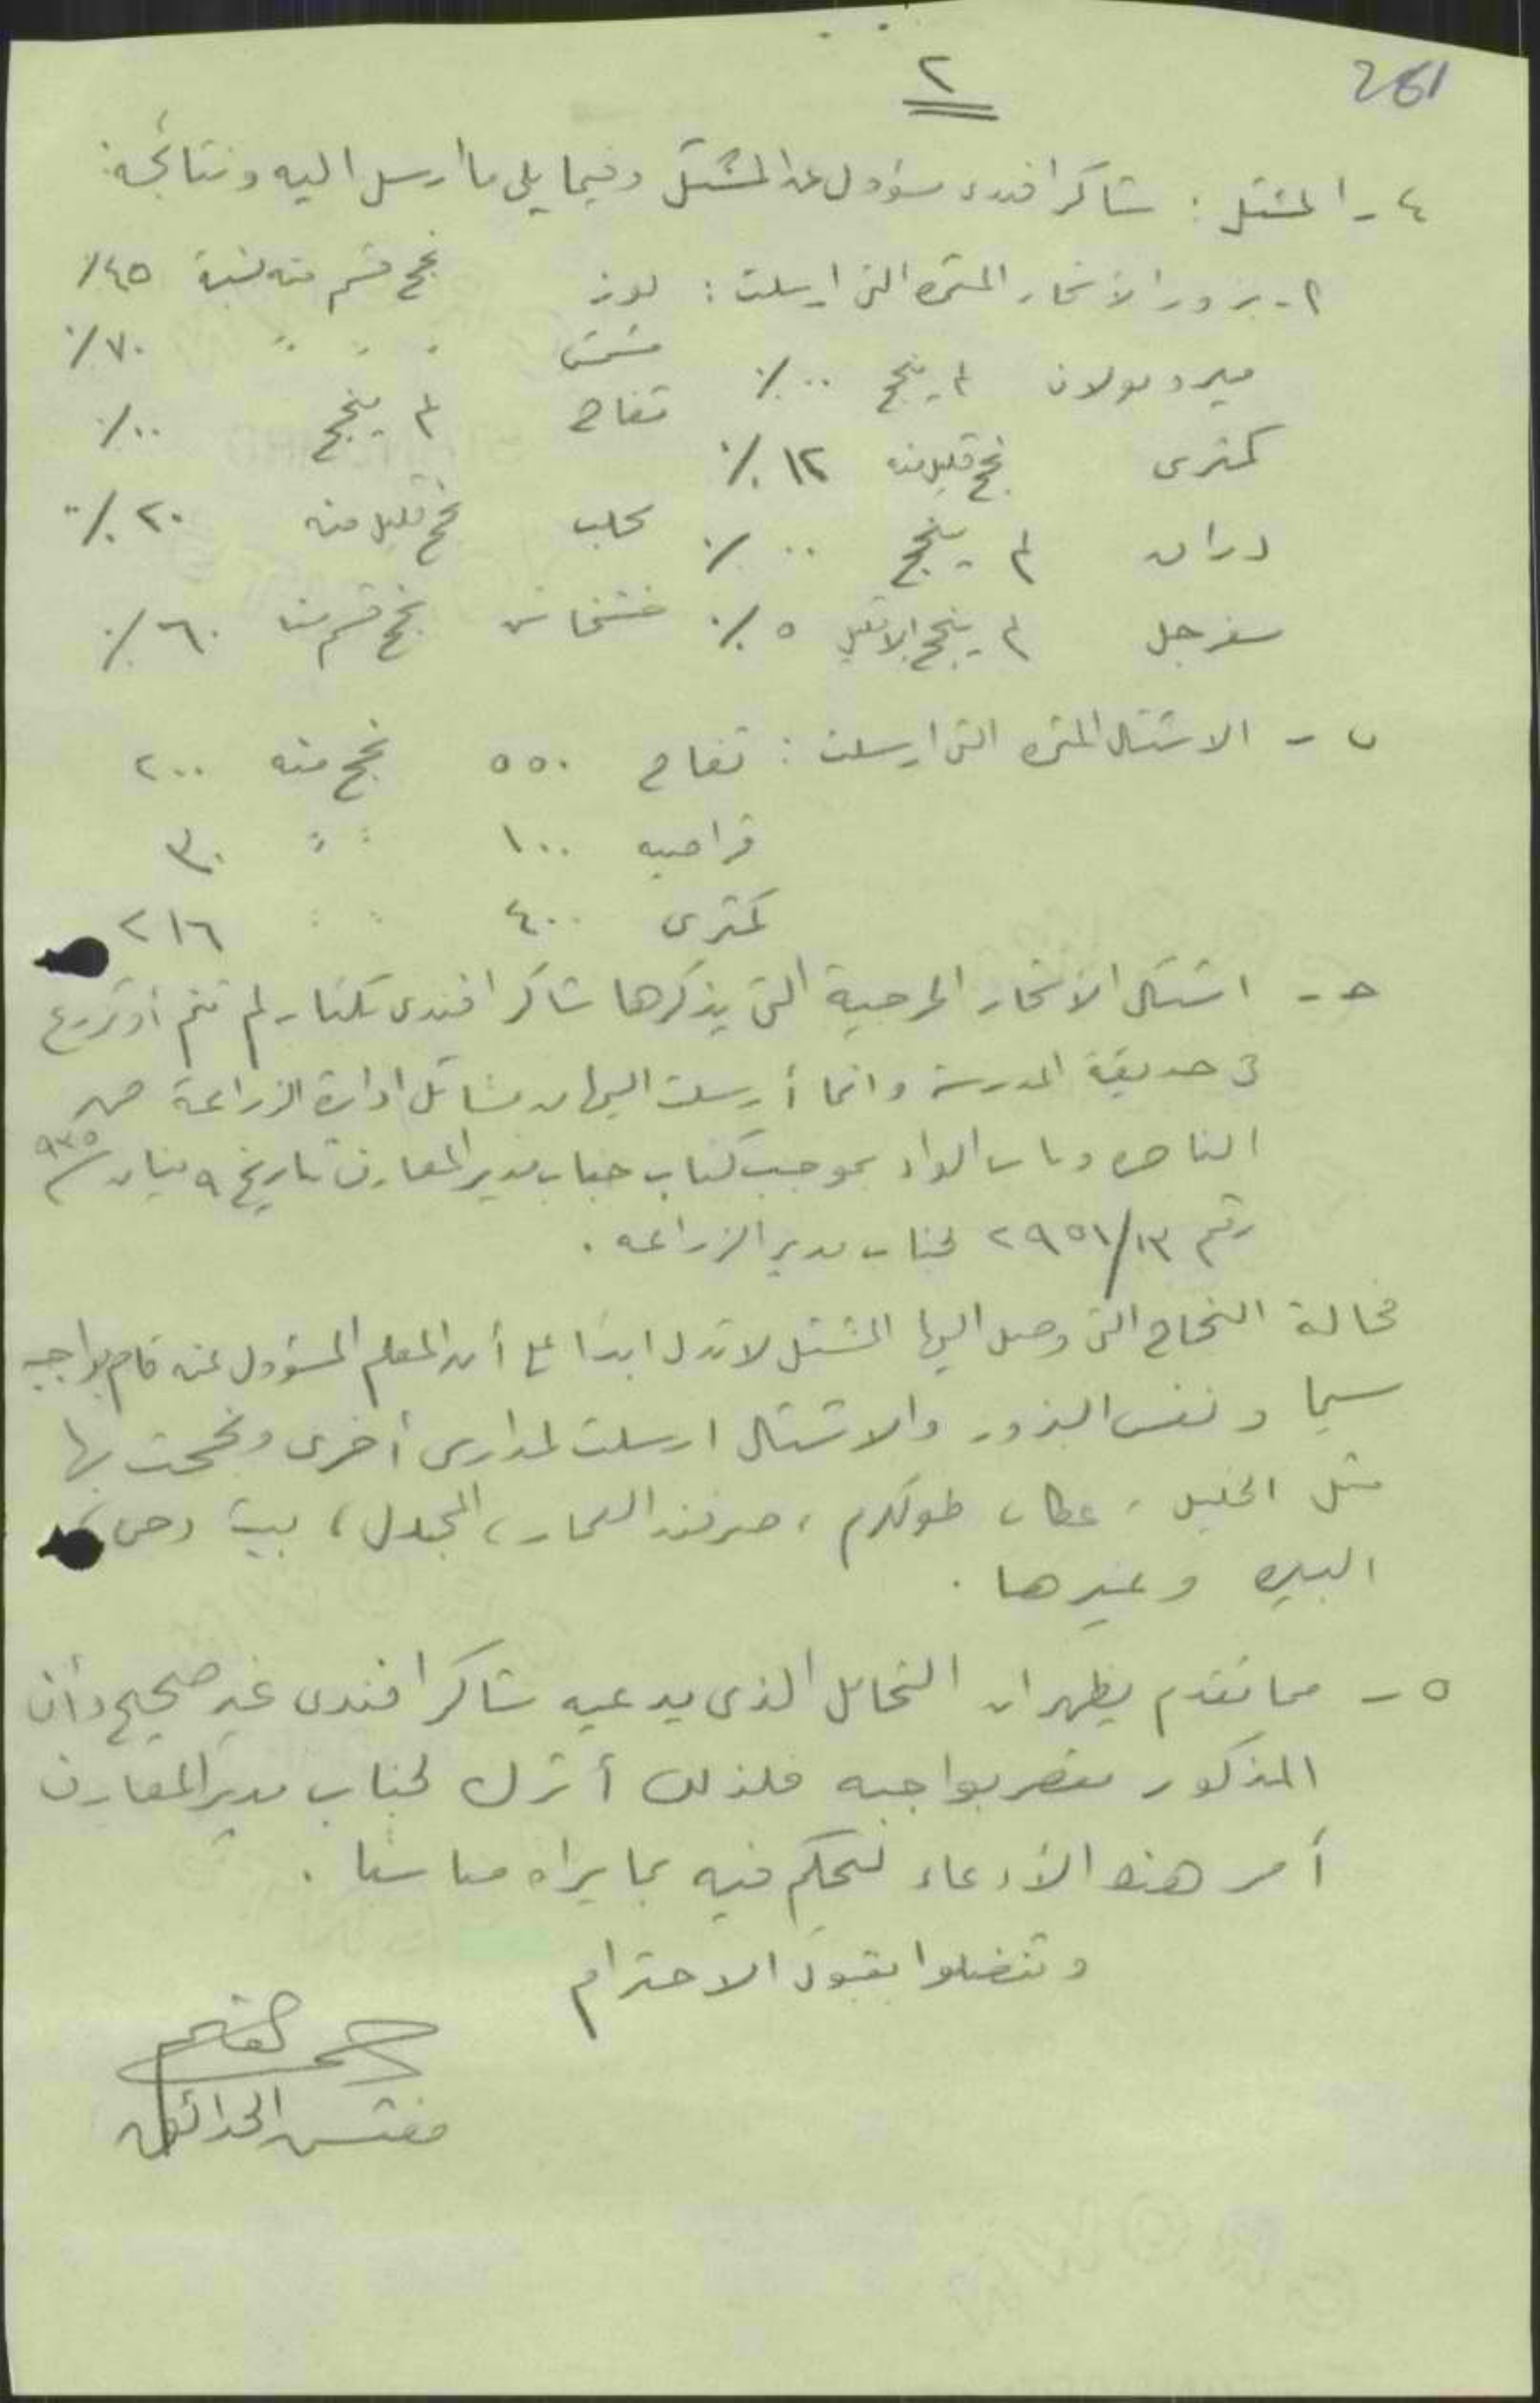 261
٢
٤ - المشتل : شاكر افندي مسؤول عن المشتل وفيما يلي ما ارسل اليه ونتائجه:
٢ - بزور الاشجار المثمره التي ارسلت : لوز نجح قسم منه نسبة ٤٥٪
مشمش " " " ٧٠٪
ميروبولان لم ينجح ٠٠٪ تفاح لم ينجح ٠٠٪
كمثرى نجح قليل منه ١٢٪
محلب نجح قليل منه ٢٠٪
دراق لم ينجح ٠٠٪
سفرجل لم ينجح الا قليل ٥٪ خشخاش نجح قسم منه ٦٠٪
ب - الاشتال المثمره التي ارسلت : تفاح ٥٥٠ نجح منه ٢٠٠
قراصيه ١٠٠ " " ٣٠
كمثرى ٤٠٠ " " ٢١٦
ح - اشتال الاشجار الحرجية التي يذكرها شاكر افندي بكتابه لم تنم أو تزرع
في حديقة المدرسة وانما أرسلت اليها من مشاتل ادارة الزراعة من
الناصره وباب الواد بموجب كتاب جناب مدير المعارف تاريخ ٩ نيسان ٩٣٥
رقم ١٣/٢٩٥١ لجناب مدير الزراعه .
فحالة النجاح التي وصل اليها المشتل لا تدل ابدا على أن المعلم المسؤول عنه قام بواجبه
سيما ونفس البزور والاشتال ارسلت لمدارس أخرى ونجحت بها
مثل الخليل ، عكا ، طولكرم ، صرفند العمار ، المجدل ، بيت دجن ،
البيره وغيرها .
٥ - مما تقدم يظهر ان التحامل الذي يدعيه شاكر افندي غير صحيح وأن
المذكور مقصر بواجبه فلذلك أترك لجناب مدير المعارف
أمر هذه الأدعاء ليحكم فيه بما يراه مناسبا .
وتفضلوا بقبول الاحترام
مفتش الحدائق